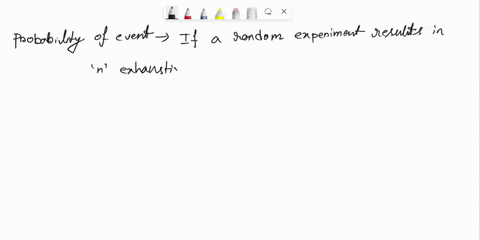 Probability of event → If a random experiment results in
'n' exhausti